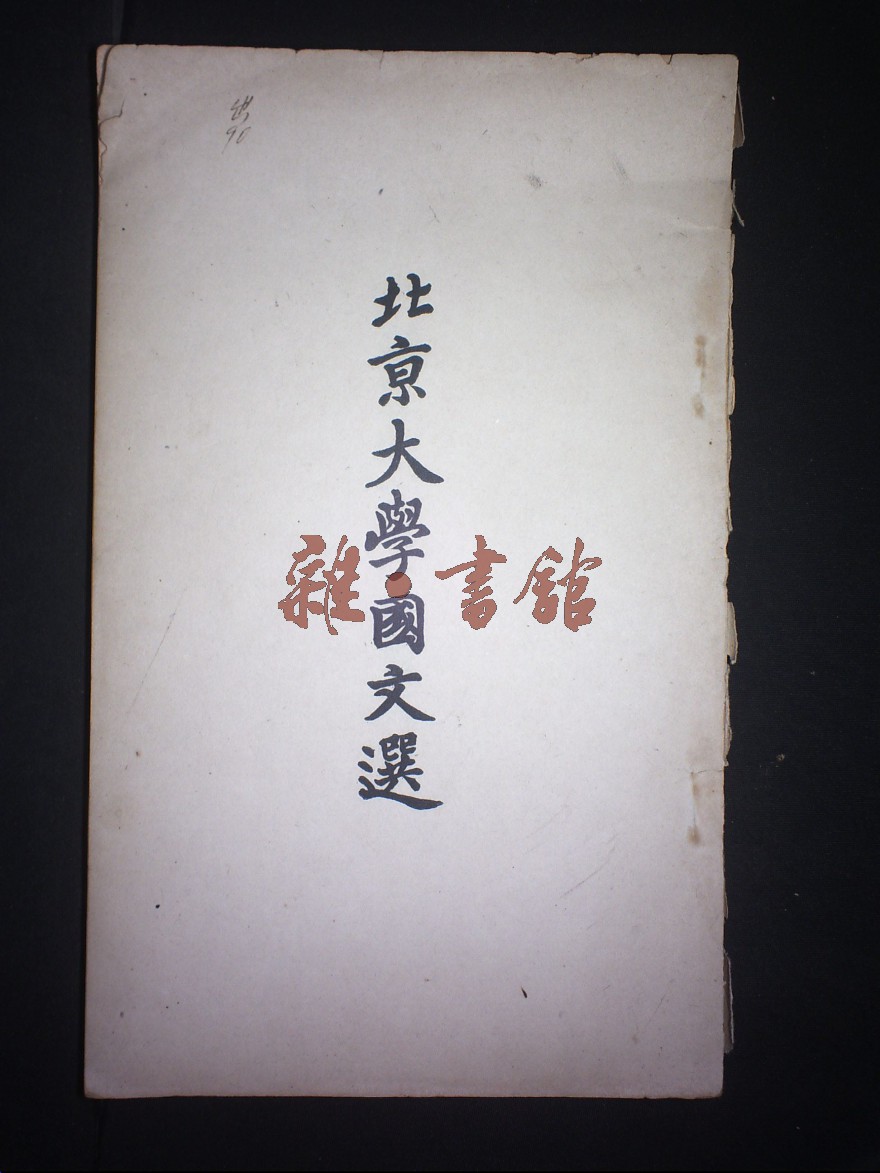 90
北京大學國文選
雜·書館